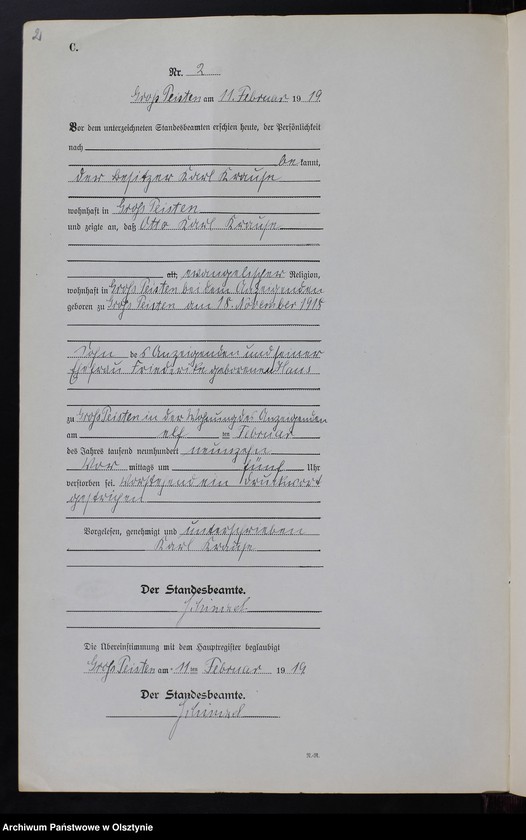 2
C.
Nr. 2
Groß Peisten am 11. Februar 19 19
Vor dem unterzeichneten Standesbeamten erschien heute, der Persönlichkeit
nach
be kannt,
der Besitzer Karl Krause
wohnhaft in Groß Peisten
und zeigte an, daß Otto Karl Krause
alt, evangelischer Religion,
wohnhaft in Groß Peisten bei dem Anzeigenden
geboren zu Groß Peisten am 18. November 1918
Sohn des Anzeigenden und seiner
Ehefrau Friederike geborenen Haus
zu Groß Peisten in der Wohnung des Anzeigenden
am elf ten Februar
des Jahres tausend neunhundert neunzehn
Vor mittags um fünf Uhr
verstorben sei. Vorstehend ein Druckwort
gestrichen
Vorgelesen, genehmigt und unterschrieben
Karl Krause
Der Standesbeamte.
Die Übereinstimmung mit dem Hauptregister beglaubigt
Groß Peisten am 11 ten Februar 19 19
Der Standesbeamte.
Archiwum Państwowe w Olsztynie